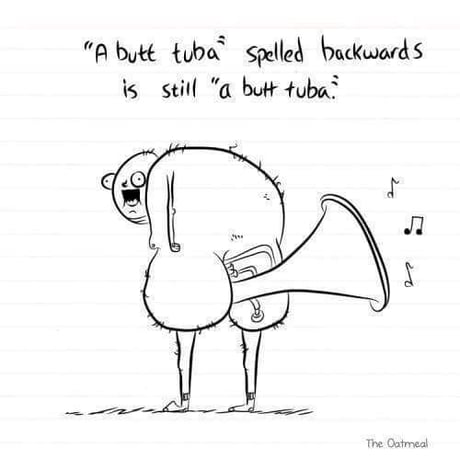 "A butt tuba" spelled backwards
is still "a butt tuba."
The Oatmeal